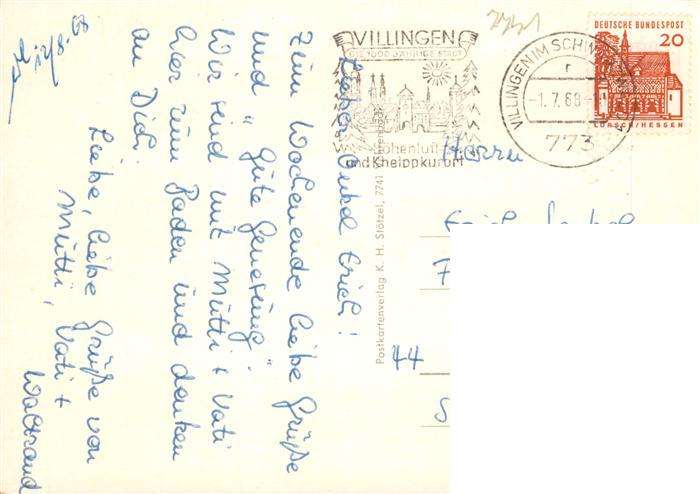 Lieber Onkel Erich!
Zum Wochenende liebe Grüße
und "Gute Genesung".
Wir sind mit Mutti + Vati
hier zum Baden und denken
an Dich.
Liebe, liebe Grüße von
Mutti, Vati +
Waltraud
12/8. 68
VILLINGEN
DIE 1000 JÄHRIGE STADT
Höhenluft-
und Kneippkurort
VILLINGEN IM SCHWARZWALD
-1.7.68-
773
DEUTSCHE BUNDESPOST
20
LORSCH/HESSEN
Postkartenverlag K. H. Stötzel, 7741
Herrn
Erich
44